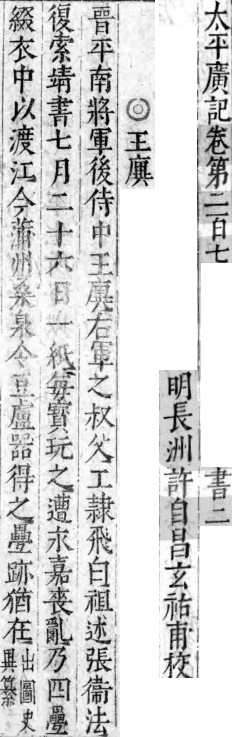 太平廣記卷第二百七
書二
明長洲許自昌玄祐甫校
◎王廙
晋平南將軍後侍中王廙右軍之叔父工隷飛白祖述張衞法
復索靖書七月二十六日一紙每寳玩之遭永嘉喪亂乃四疊
綴衣中以渡江今蒲州桑泉令豆盧器得之疊跡猶在出圖史異纂